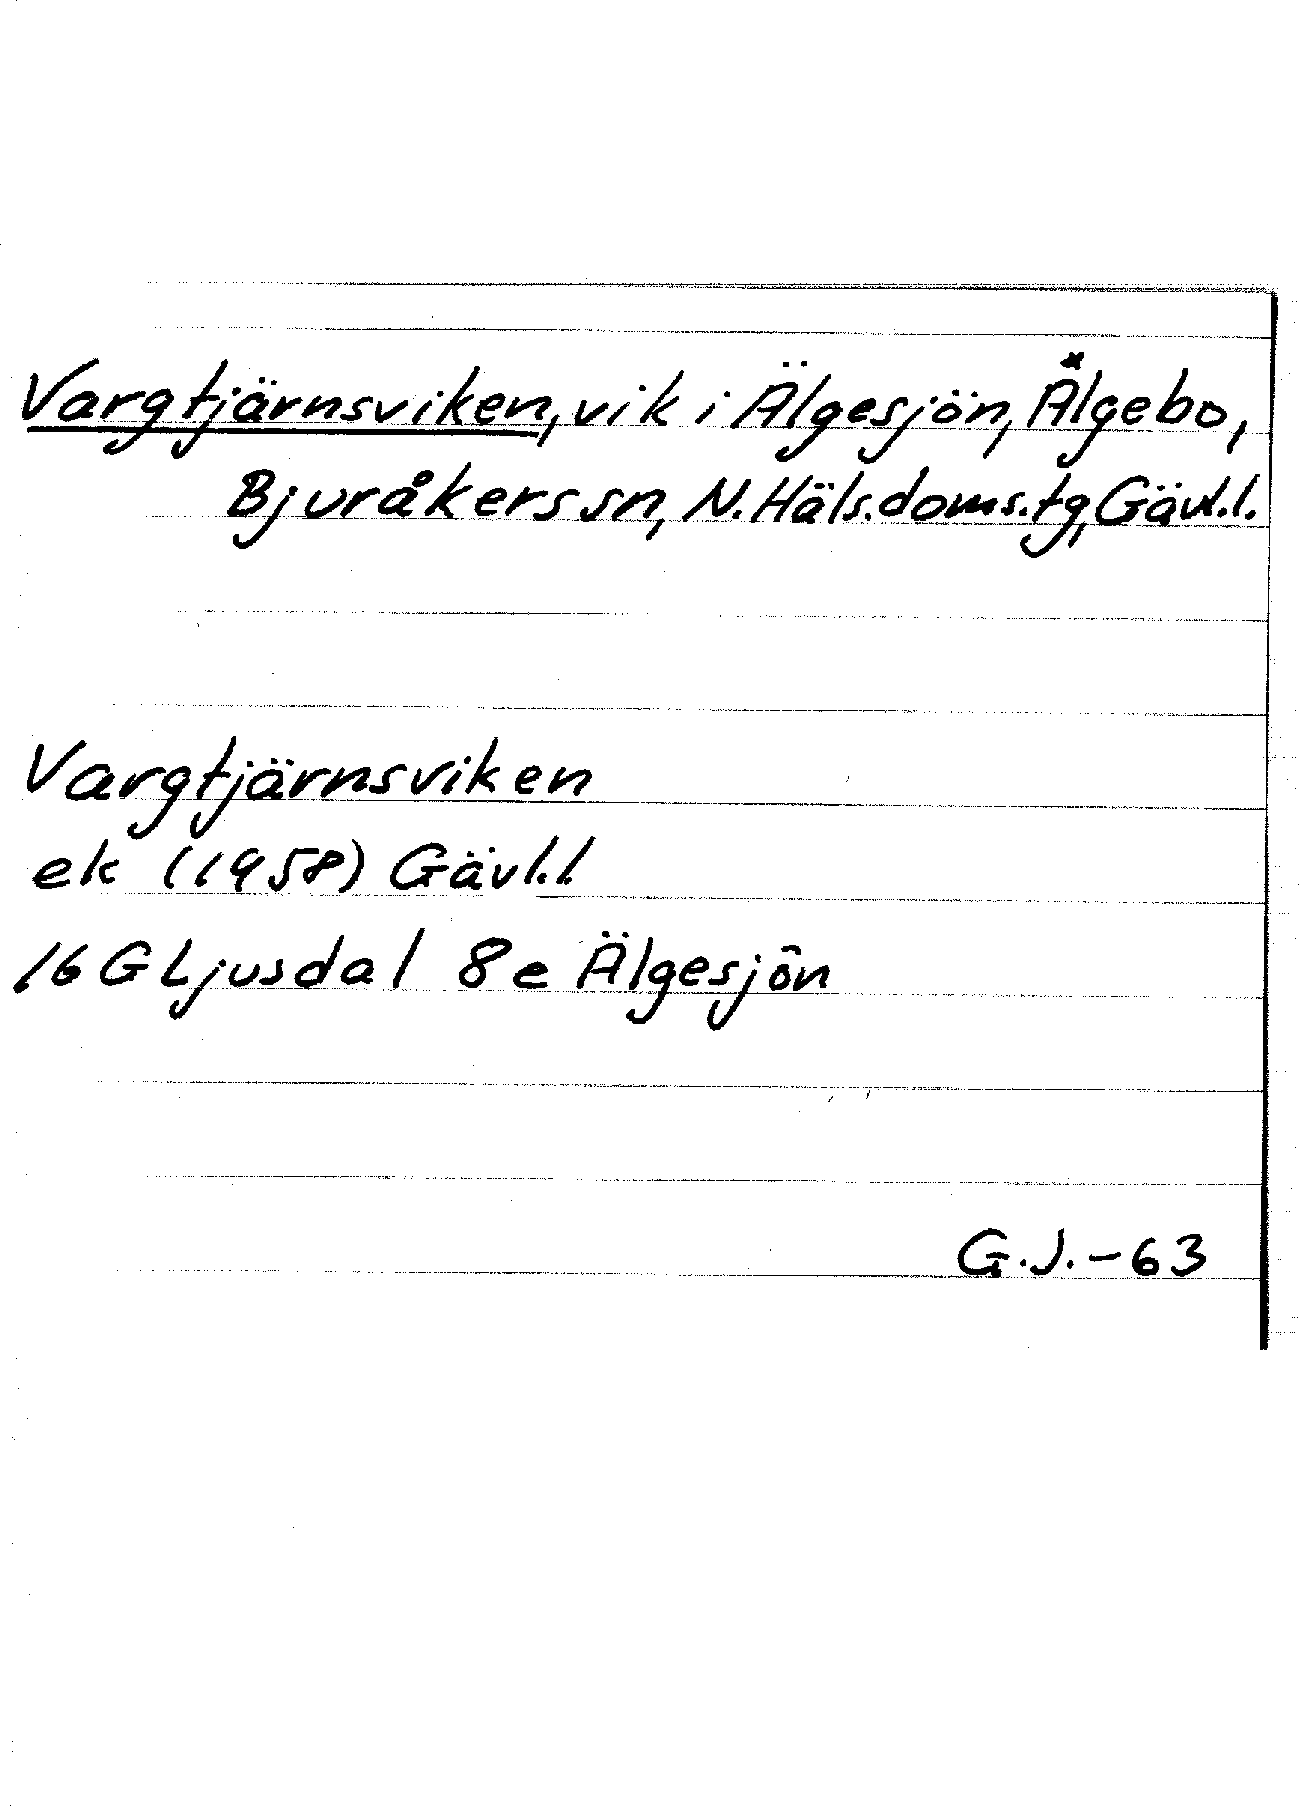 Vargtjärnsviken, vik i Älgesjön, Älgebo,
Bjuråkers sn, N. Häls. doms. tg, Gävl.l.
Vargtjärnsviken
ek (1958) Gävl.l.
16 G Ljusdal 8e Älgesjön
G.J.-63